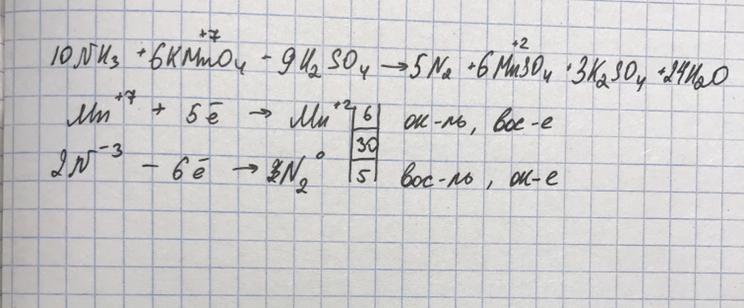 10NH₃ + 6KMn⁺⁷O₄ - 9H₂SO₄ → 5N₂ + 6Mn⁺²SO₄ + 3K₂SO₄ + 24H₂O
Mn⁺⁷ + 5ē → Mn⁺² | 6 | ок-ль, вос-е
30
2N⁻³ - 6ē → N₂⁰ | 5 | вос-ль, ок-е